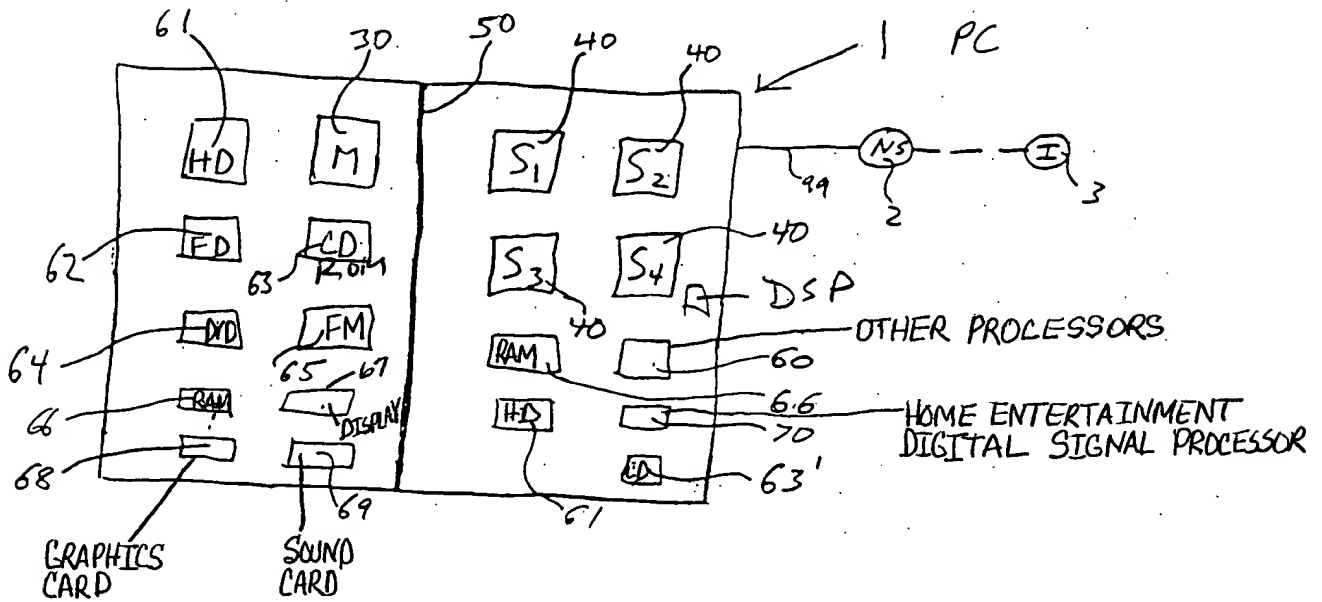 61
30
50
40
40
1 PC
HD
M
S1
S2
NS
I
99
2
3
62
FD
CD
ROM
63
S3
S4
40
40
DSP
64
DVD
FM
65
67
RAM
OTHER PROCESSORS
60
66
RAM
DISPLAY
HD
66
70
HOME ENTERTAINMENT
DIGITAL SIGNAL PROCESSOR
68
69
CD
63'
61
GRAPHICS
CARD
SOUND
CARD